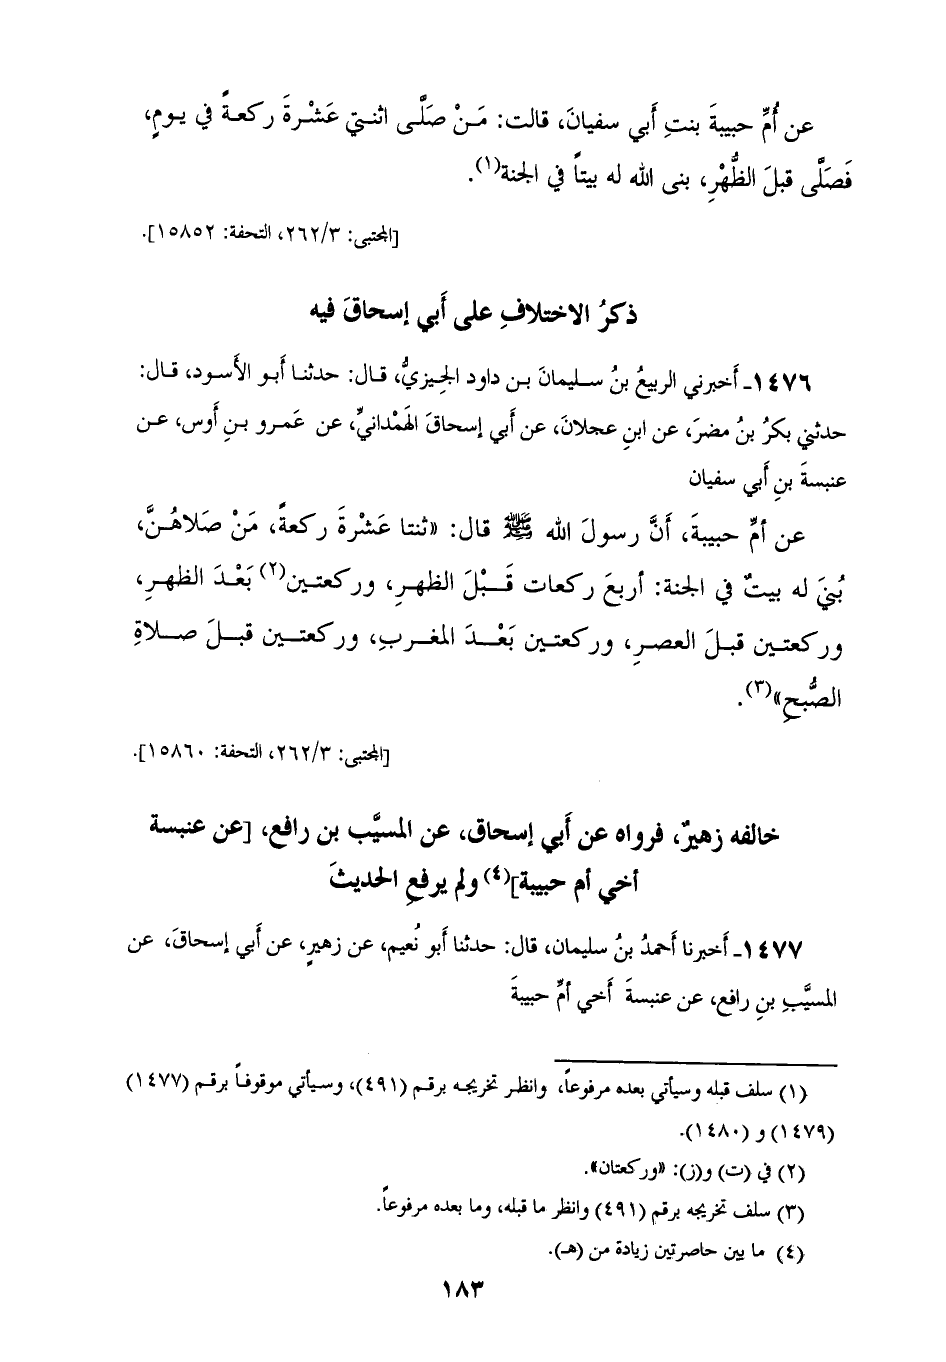 عن أُمِّ حبيبةَ بنتِ أَبي سفيانَ، قالت: مَنْ صَلَّى اثنتي عَشْرةَ ركعةً في يومٍ،
فَصَلَّى قبلَ الظُّهْرِ، بنى الله له بيتاً في الجنة(١).
[المجتبى: ٢٦٢/٣، التحفة: ١٥٨٥٢].
ذكرُ الاختلافِ على أَبي إسحاقَ فيه
١٤٧٦ـ أَخبرني الربيعُ بنُ سليمانَ بن داود الجِيزيُّ، قال: حدثنا أَبو الأَسود، قال:
حدثني بكرُ بنُ مضرَ، عن ابنِ عجلانَ، عن أَبي إسحاقَ الهَمْدانيِّ، عن عَمرو بنِ أَوس، عن
عنبسةَ بنِ أَبي سفيان
عن أمِّ حبيبةَ، أَنَّ رسولَ الله ﷺ قال: «ثنتا عَشْرةَ ركعةً، مَنْ صَلاهُنَّ،
بُنيَ له بيتٌ في الجنة: أربعَ ركعات قَبْلَ الظهرِ، وركعتين(٢) بَعْدَ الظهرِ،
وركعتين قبلَ العصرِ، وركعتين بَعْدَ المغربِ، وركعتين قبلَ صلاةِ
الصُّبحِ»(٣).
[المجتبى: ٢٦٢/٣، التحفة: ١٥٨٦٠].
خالفه زهيرٌ، فرواه عن أَبي إسحاق، عن المسيَّب بن رافع، [عن عنبسة
أخي أم حبيبة](٤) ولم يرفعِ الحديثَ
١٤٧٧ـ أَخبرنا أحمدُ بنُ سليمان، قال: حدثنا أَبو نُعيم، عن زهيرٍ، عن أَبي إسحاقَ، عن
المسيَّبِ بنِ رافع، عن عنبسةَ أَخي أمِّ حبيبةَ
(١) سلف قبله وسيأتي بعده مرفوعاً، وانظر تخريجه برقم (٤٩١)، وسيأتي موقوفاً برقم (١٤٧٧)
(١٤٧٩) و (١٤٨٠).
(٢) في (ت) و(ز): «وركعتان».
(٣) سلف تخريجه برقم (٤٩١) وانظر ما قبله، وما بعده مرفوعاً.
(٤) ما بين حاصرتين زيادة من (هـ).
١٨٣